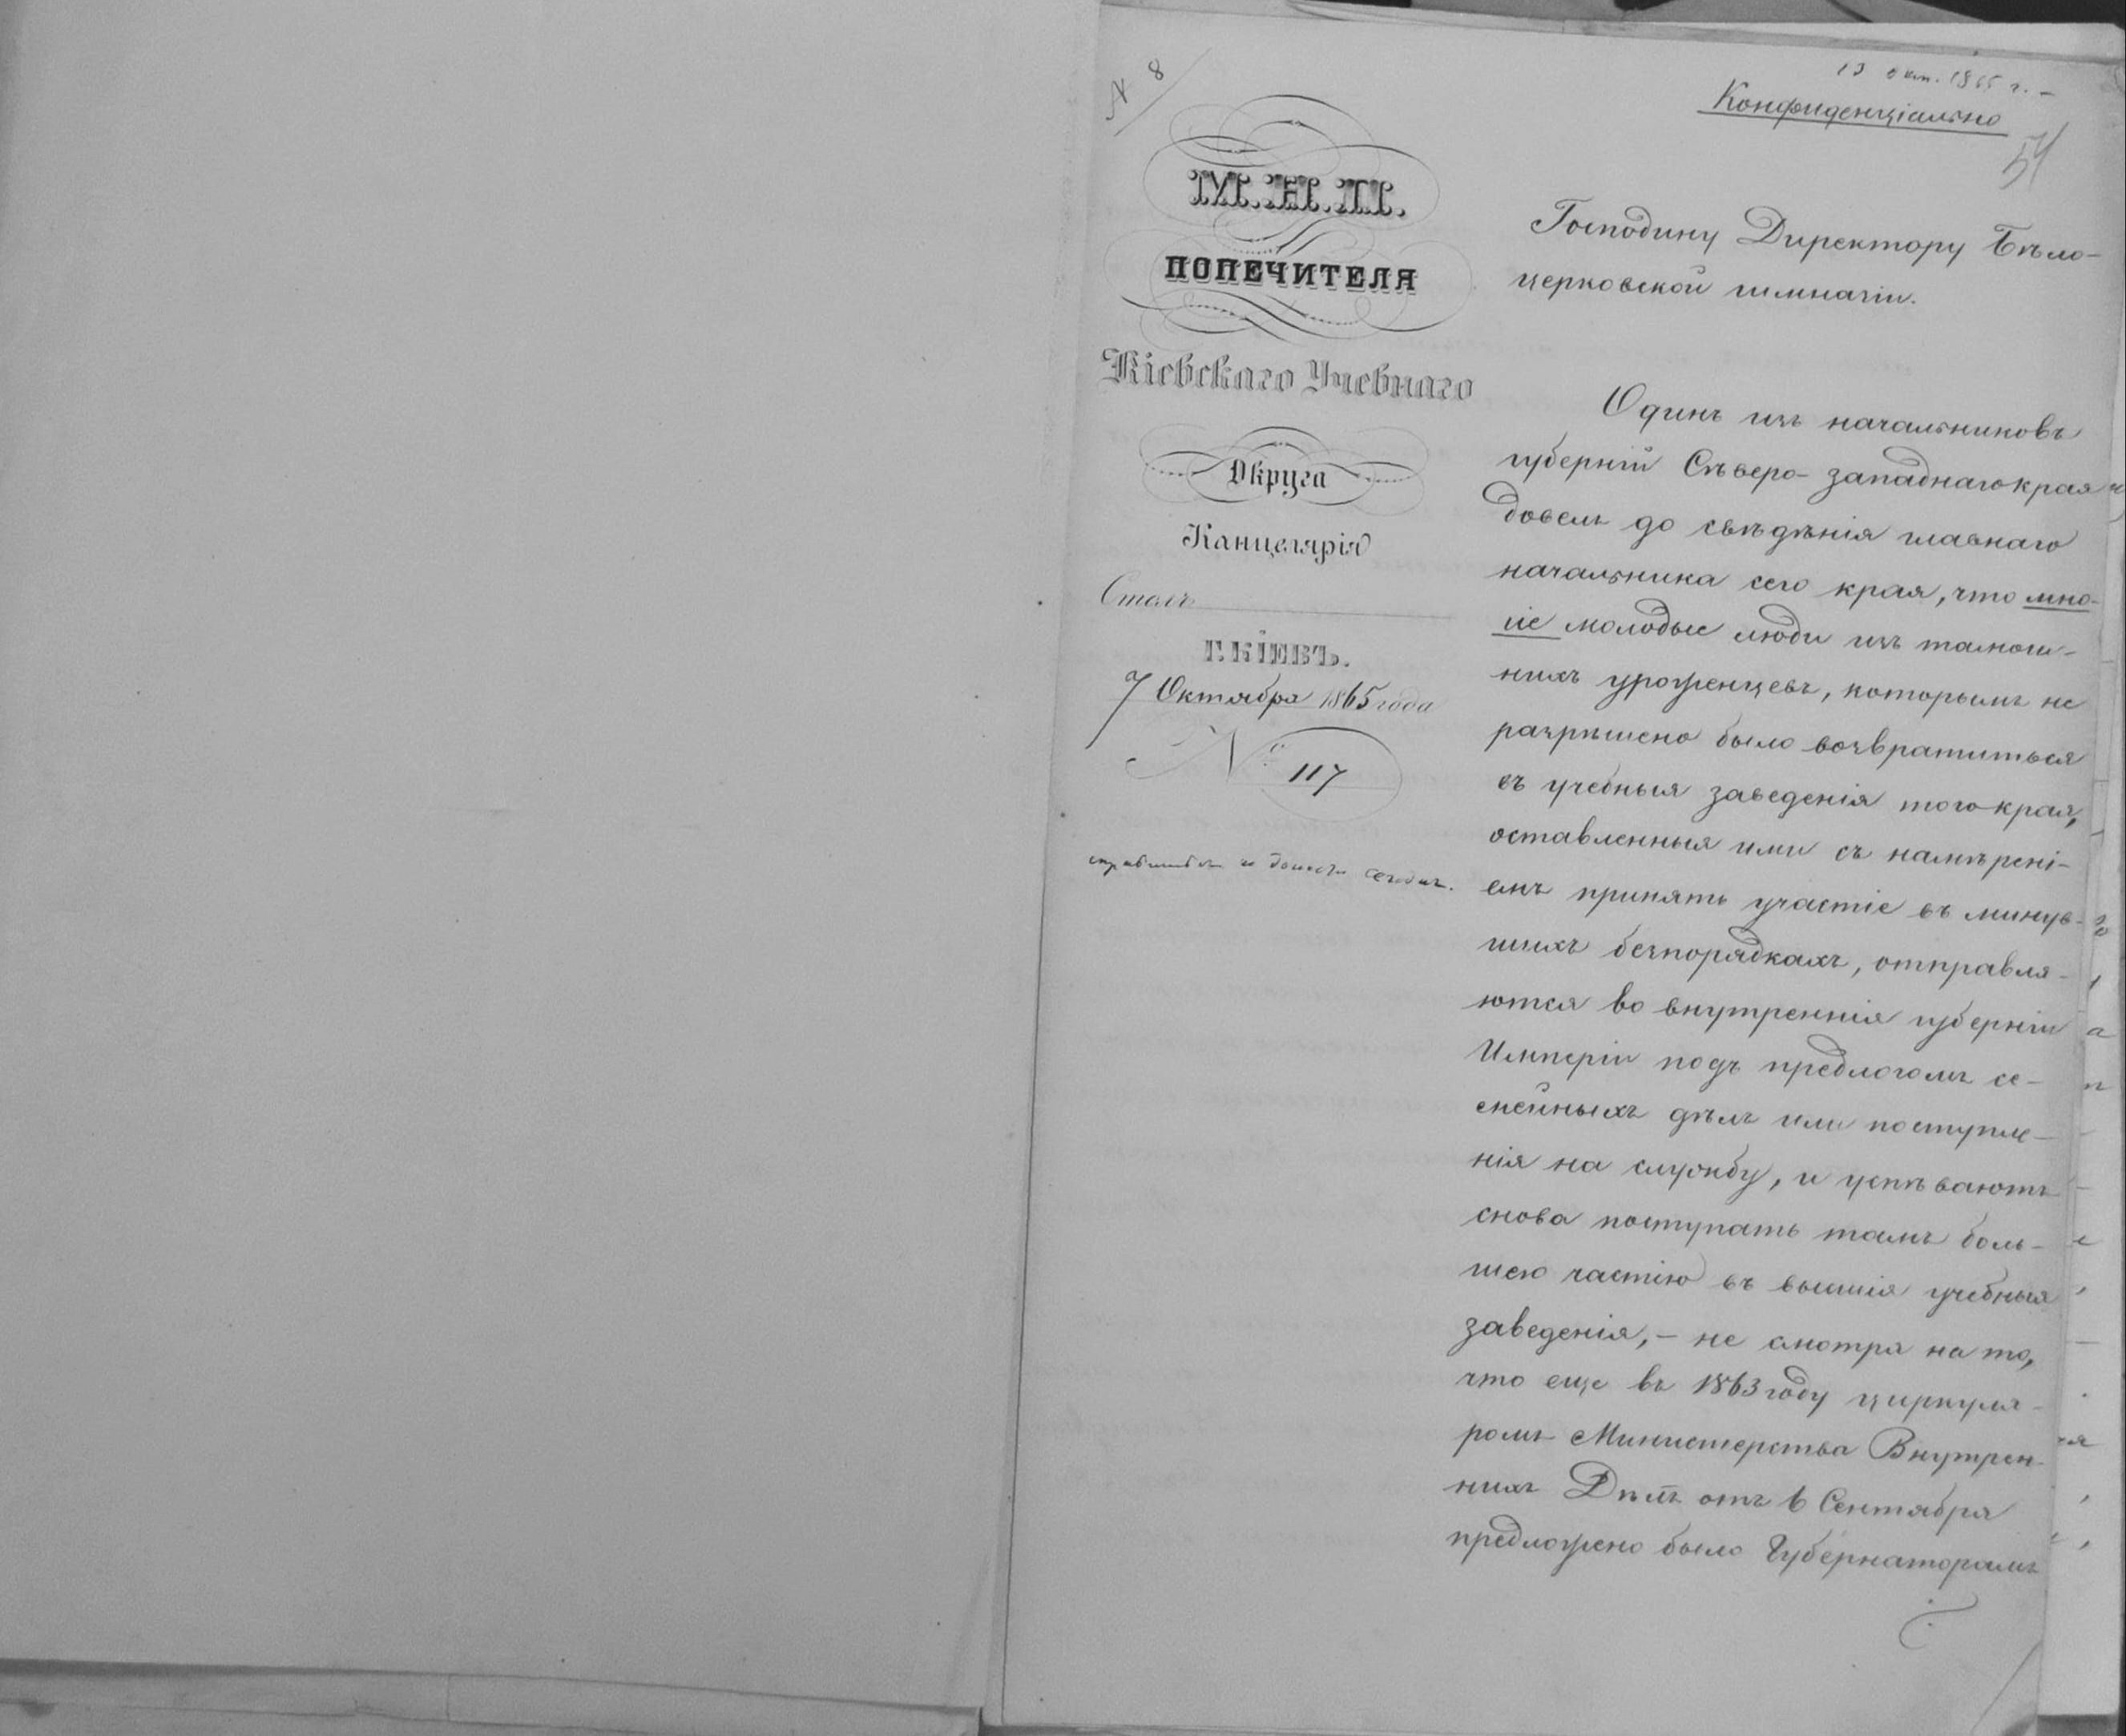 N 8
13 окт. 1865 г. –
Конфиденціально
54
М.Н.П.
ПОПЕЧИТЕЛЯ
Кіевскаго Учебнаго
Округа
Канцелярія
Столъ
Г. КІЕВЪ.
7 Октября 1865 года
№ 117
Господину Директору Бѣло-
церковской гимназіи.
Одинъ изъ начальниковъ
губерній Сѣверо-западнаго края
довелъ до свѣдѣнія главнаго
начальника сего края, что мно-
гіе молодые люди изъ тамош-
нихъ уроженцевъ, которымъ не
разрѣшено было возвратиться
въ учебныя заведенія того края,
оставленныя ими съ намѣрені-
емъ принять участіе въ минув-
шихъ безпорядкахъ, отправля-
ются во внутреннія губерніи
Имперіи подъ предлогомъ се-
мейныхъ дѣлъ или поступле-
нія на службу, и успѣваютъ
снова поступать тамъ боль-
шею частію въ высшія учебныя
заведенія, – не смотря на то,
что еще въ 1863 году циркуля-
ромъ Министерства Внутрен-
нихъ Дѣлъ отъ 6 Сентября
предложено было Губернаторамъ